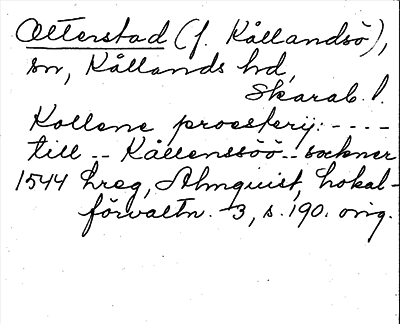 Otterstad (f. Kållandsö),
sn, Kållands hd,
Skarab. l.
Kollene proesterij: - - - -
till - - Kållenssöö - - sockner
1544 hreg, Almquist, Lokal-
förvaltn. -3, s. 190. orig.